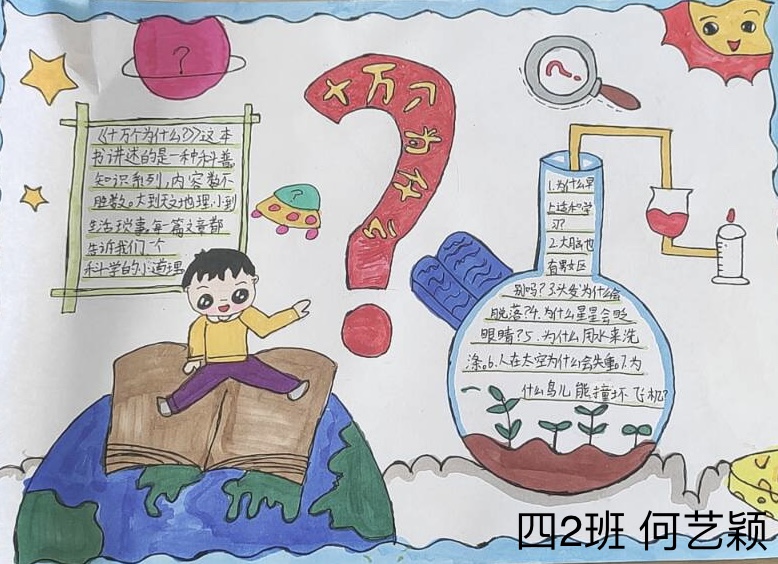 十万个为什么
《十万个为什么?》这本
书讲述的是一种科普
知识系列,内容数不
胜数。大到天文地理,小到
生活琐事,每一篇文章都
告诉我们一个
科学的小道理
?
?
?
1.为什么早
上适和学
习?
2.大脑也
有男女区
别吗?3.头发为什么会
脱落?4.为什么星星会眨
眼睛?5.为什么用水来洗
涤。6.人在太空为什么会失重。7.为
什么鸟儿能撞坏飞机?
四2班 何艺颖